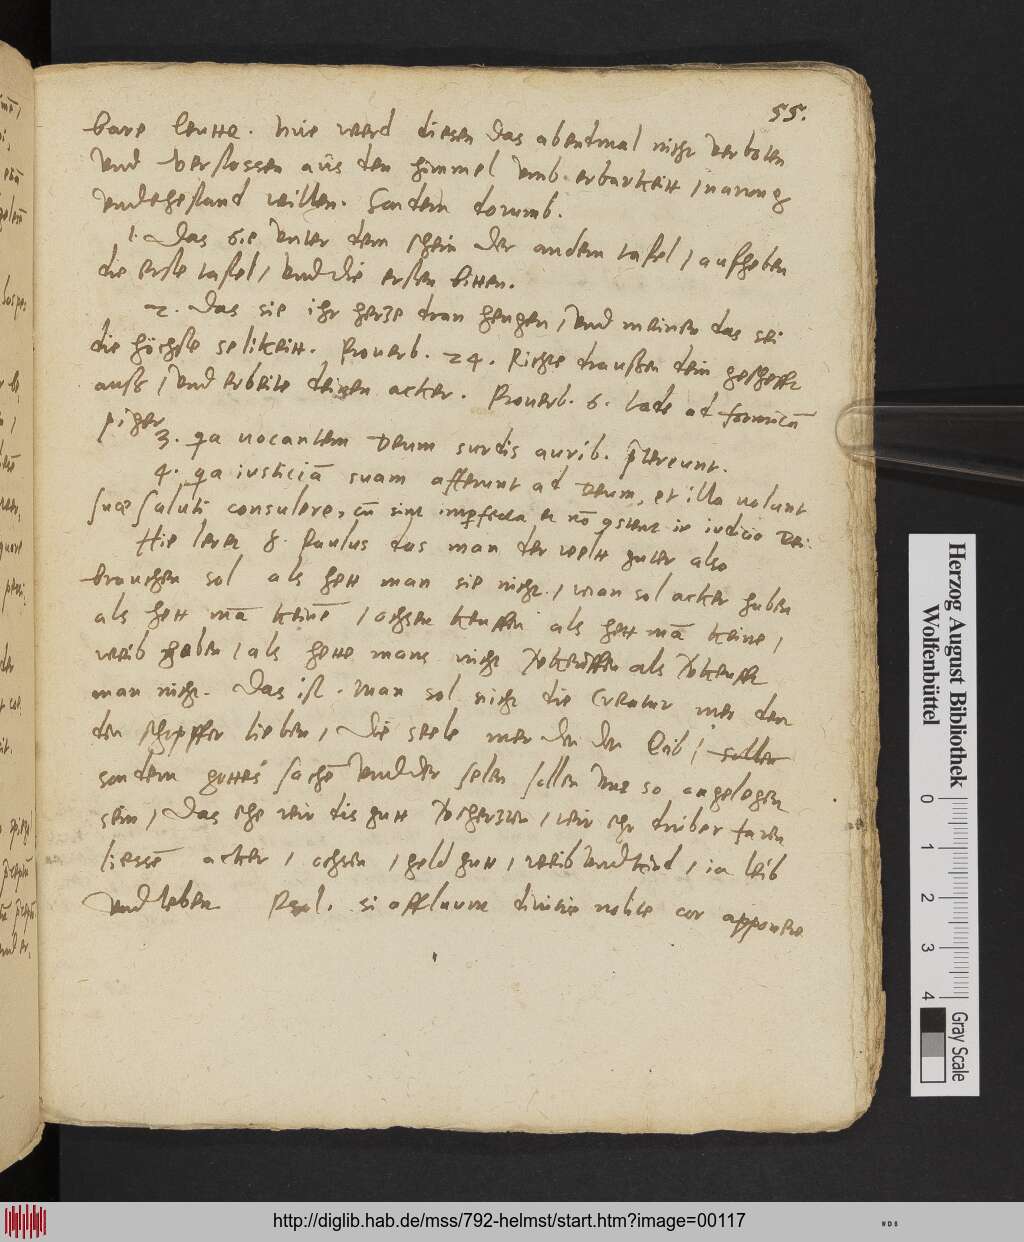 55.
bare leutte. Nue werd diesen das abendmal nicht verboten
Vnd verstossen aus den himmel vmb erbarkeitt, narung
Vnd ehestand willen. Sondern dorumb.
1. Das sie vnter dem schein der andern tafel, aufheben
die erste tafel, Vnd die ersten bitten.
2. Das sie ihr hertze dran hengen, Vnd meinen das sei
die höchste selikeitt. Proverb. 24. Richte draußen dein gescheft
auß, Vnd erbeite deinen acker. Proverb. 6. Vade ad formicā
piger
3. qa vocantem Deum surdis aurib. p̄tereunt.
4. qa iusticiā suam afferunt ad Deum, et illa volunt
suæ saluti consulere, cū sint imperfecta et nō in iudicio Dei.
Hie leret S. Paulus das man der welt guter also
brauchen sol als hett man sie nicht, man sol acker haben
als hett mā keinē, ochsen keuffen als hett mā keine,
weib haben, als hette mans nicht als
man nicht. Das ist. Man sol nicht die Creatur mer den
den schepffer lieben, Die seele mer den den leib, sollen
sondern gottes sachē Vnd der selen sollen vns so angelegen
sein, Das ehe wir dis gutt wir ehr druber faren
liessē acker, ochsen, geld gutt, weib Vnd kind, ia leib
Vnd leben Psal. si affluunt divitie nolite cor apponere
Herzog August Bibliothek
Wolfenbüttel
0 1 2 3 4
Gray Scale
http://diglib.hab.de/mss/792-helmst/start.htm?image=00117